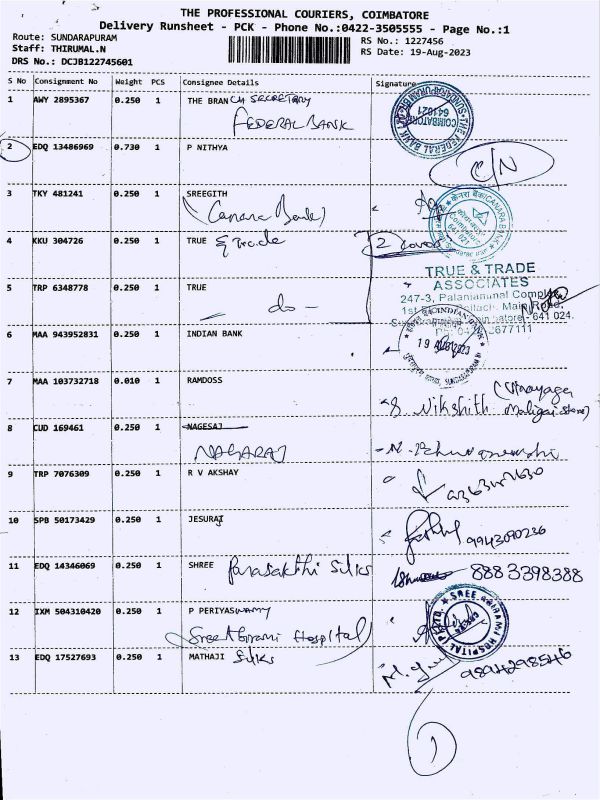 THE PROFESSIONAL COURIERS, COIMBATORE
Delivery Runsheet - PCK - Phone No.:0422-3505555 - Page No.:1
Route: SUNDARAPURAM
Staff: THIRUMAL.N
DRS No.: DCJB122745601
RS No.: 1227456
RS Date: 19-Aug-2023
S No Consignment No Weight PCS Consignee Details Signature
1 AWY 2895367 0.250 1 THE BRANCH SECRETARY
FEDERAL BANK
THE FEDERAL BANK
COIMBATORE
641021
2 EDQ 13486969 0.730 1 P NITHYA
C/N
3 TKY 481241 0.250 1 SREEGITH
(Canara Bank)
केनरा बैंक/CANARA BANK
4 KKU 304726 0.250 1 TRUE & Trade
2 cover
5 TRP 6348778 0.250 1 TRUE
- do -
TRUE & TRADE
ASSOCIATES
247-3, Palaniammal Complex
1st Pollachi Main Road,
641 024.
2677111
6 MAA 943952831 0.250 1 INDIAN BANK
INDIAN BANK
19 AUG 2023
7 MAA 103732718 0.010 1 RAMDOSS
Nikshith (Vinayaga
Maligai Store)
8 CUD 169461 0.250 1 NAGESAJ
NAGARAJ
9 TRP 7076309 0.250 1 R V AKSHAY
10 SPB 50173429 0.250 1 JESURAJ
9943090236
11 EDQ 14346069 0.250 1 SHREE Parasakthi Silks
888 3398388
12 IXM 504310420 0.250 1 P PERIYASWAMY
Sree Abirami Hospital)
SREE ABIRAMI HOSPITAL (P) LTD.
13 EDQ 17527693 0.250 1 MATHAJI Silks
9894298546